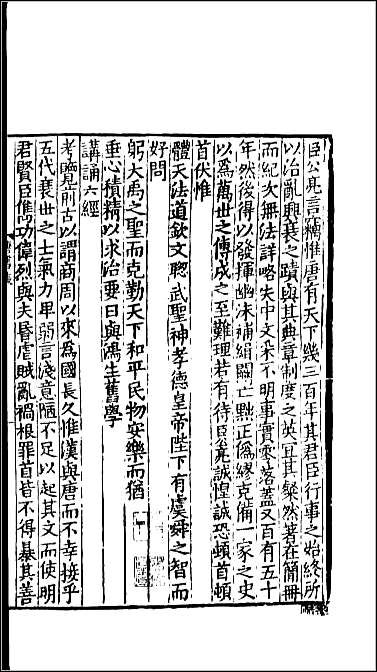 臣公亮言竊惟唐有天下幾三百年其君臣行事之始終所
以治亂興衰之蹟與其典章制度之英宜其粲然著在簡冊
而紀次無法詳略失中文采不明事實零落蓋又百有五十
年然後得以發揮幽沬補緝闕亡黜正僞繆克備一家之史
以爲萬世之傳成之至難理若有待臣公亮誠惶誠恐頓首頓
首伏惟
體天法道欽文聰武聖神孝德皇帝陛下有虞舜之智而
好問
躬大禹之聖而克勤天下和平民物安樂而猶
垂心積精以求治要日與鴻生舊學
講誦六經
考覽前古以謂商周以來爲國長久惟漢與唐而不幸接乎
五代衰世之士氣力卑弱言淺意陋不足以起其文而使明
君賢臣儁功偉烈與夫昏虐賊亂禍根罪首皆不得暴其善